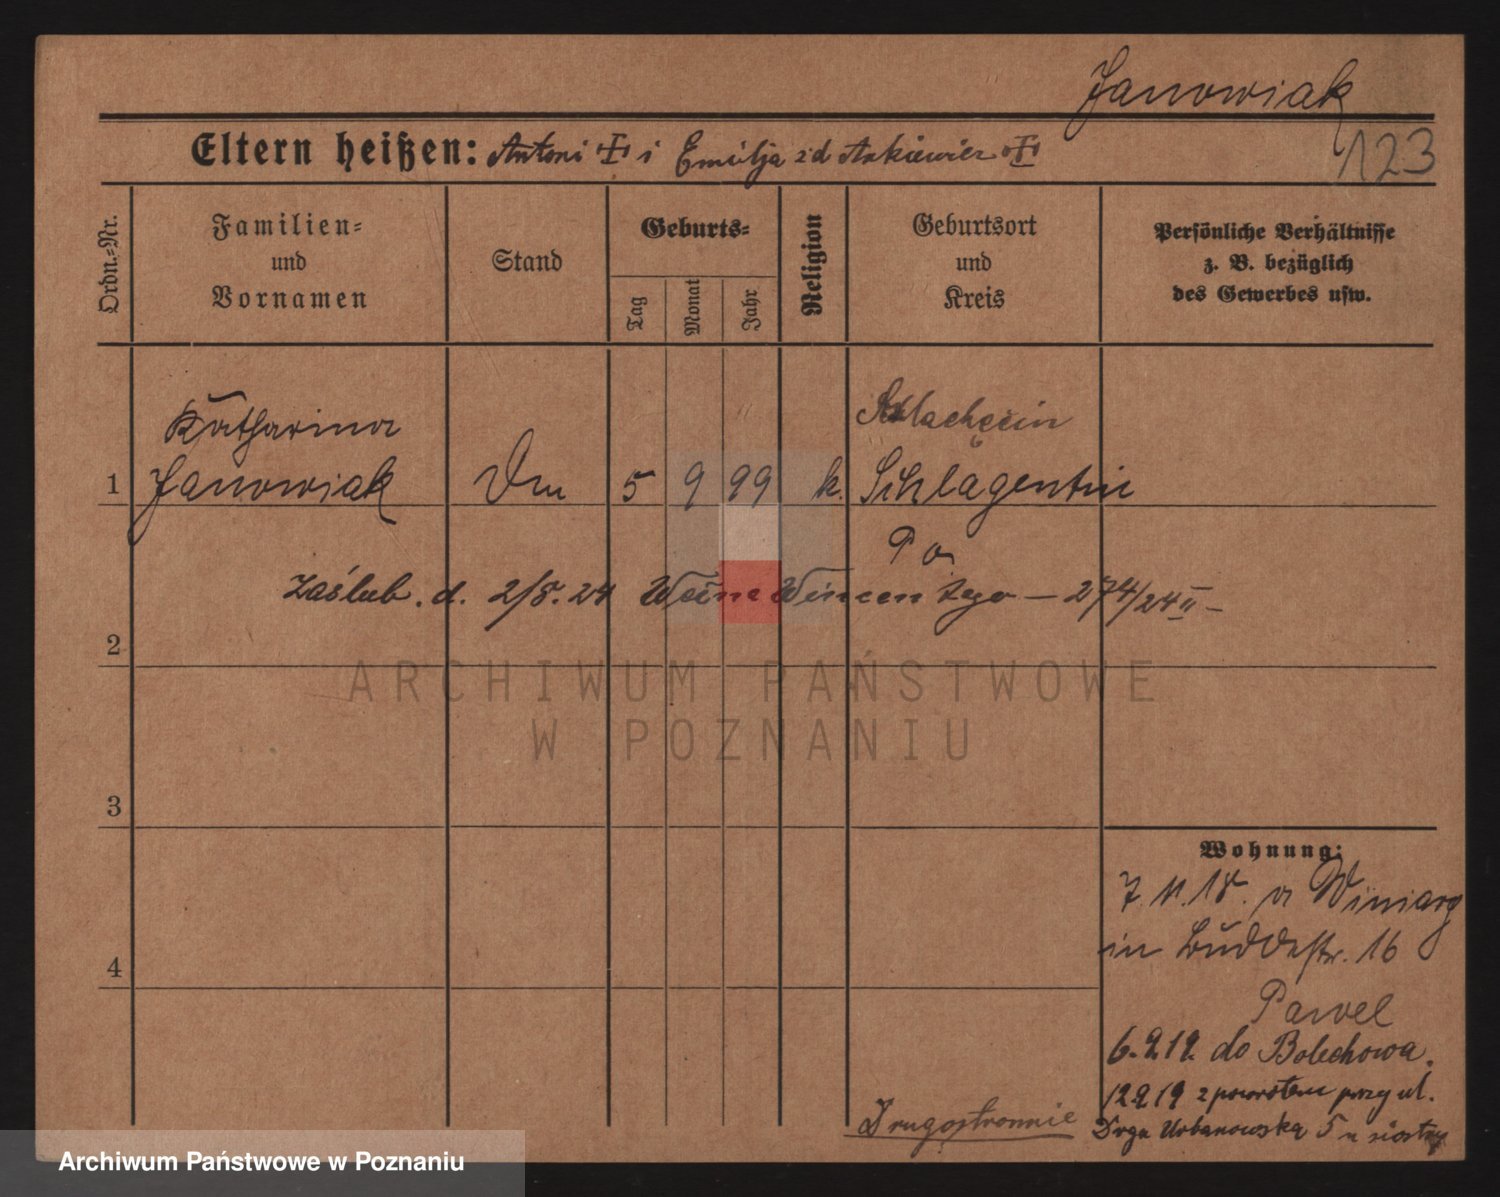 Janowiak
123
Eltern heißen: Antoni i Emilja zd Askiewicz
Ordn.-Nr.
Familien-
und
Vornamen
Stand
Geburts-
Tag
Monat
Jahr
Religion
Geburtsort
und
Kreis
Persönliche Verhältnisse
z. B. bezüglich
des Gewerbes usw.
Katharina
Szlachęcin
1 Janowiak Dm 5 9 99 k. Schlagentin
Po.
Zaślub. d. 2/8. 24 Woźne Wincentego – 274/24 II –
2
3
4
ARCHIWUM PAŃSTWOWE
W POZNANIU
Wohnung:
7. 11. 18. a Winiary
in Buddestr. 16
Pawel
6.2.19. do Bolechowa.
12 2 19 z powrotem przy ul.
Drga Urbanowska 5 u siostry
Drugostronnie
Archiwum Państwowe w Poznaniu